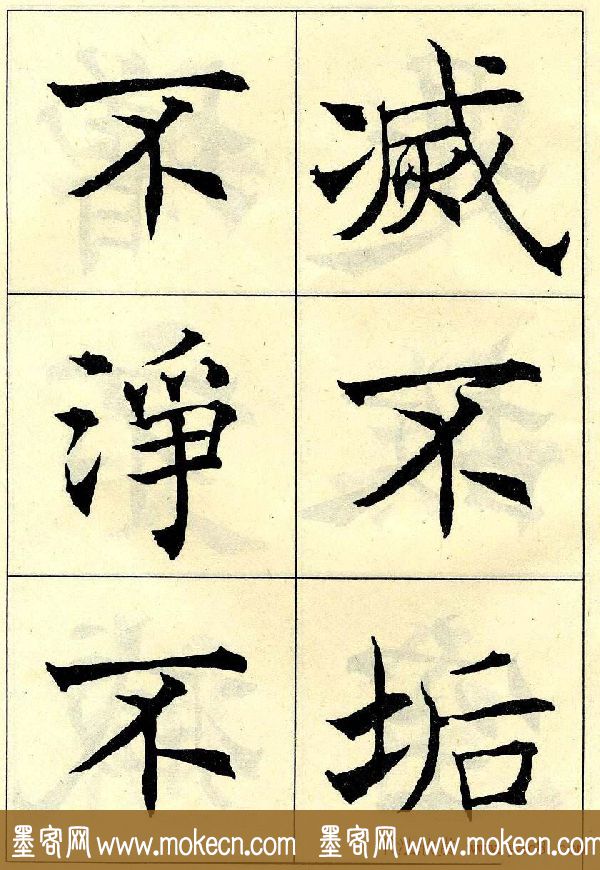 滅不垢
不淨不
墨客网 www.mokecn.com 墨客网 www.mokecn.com